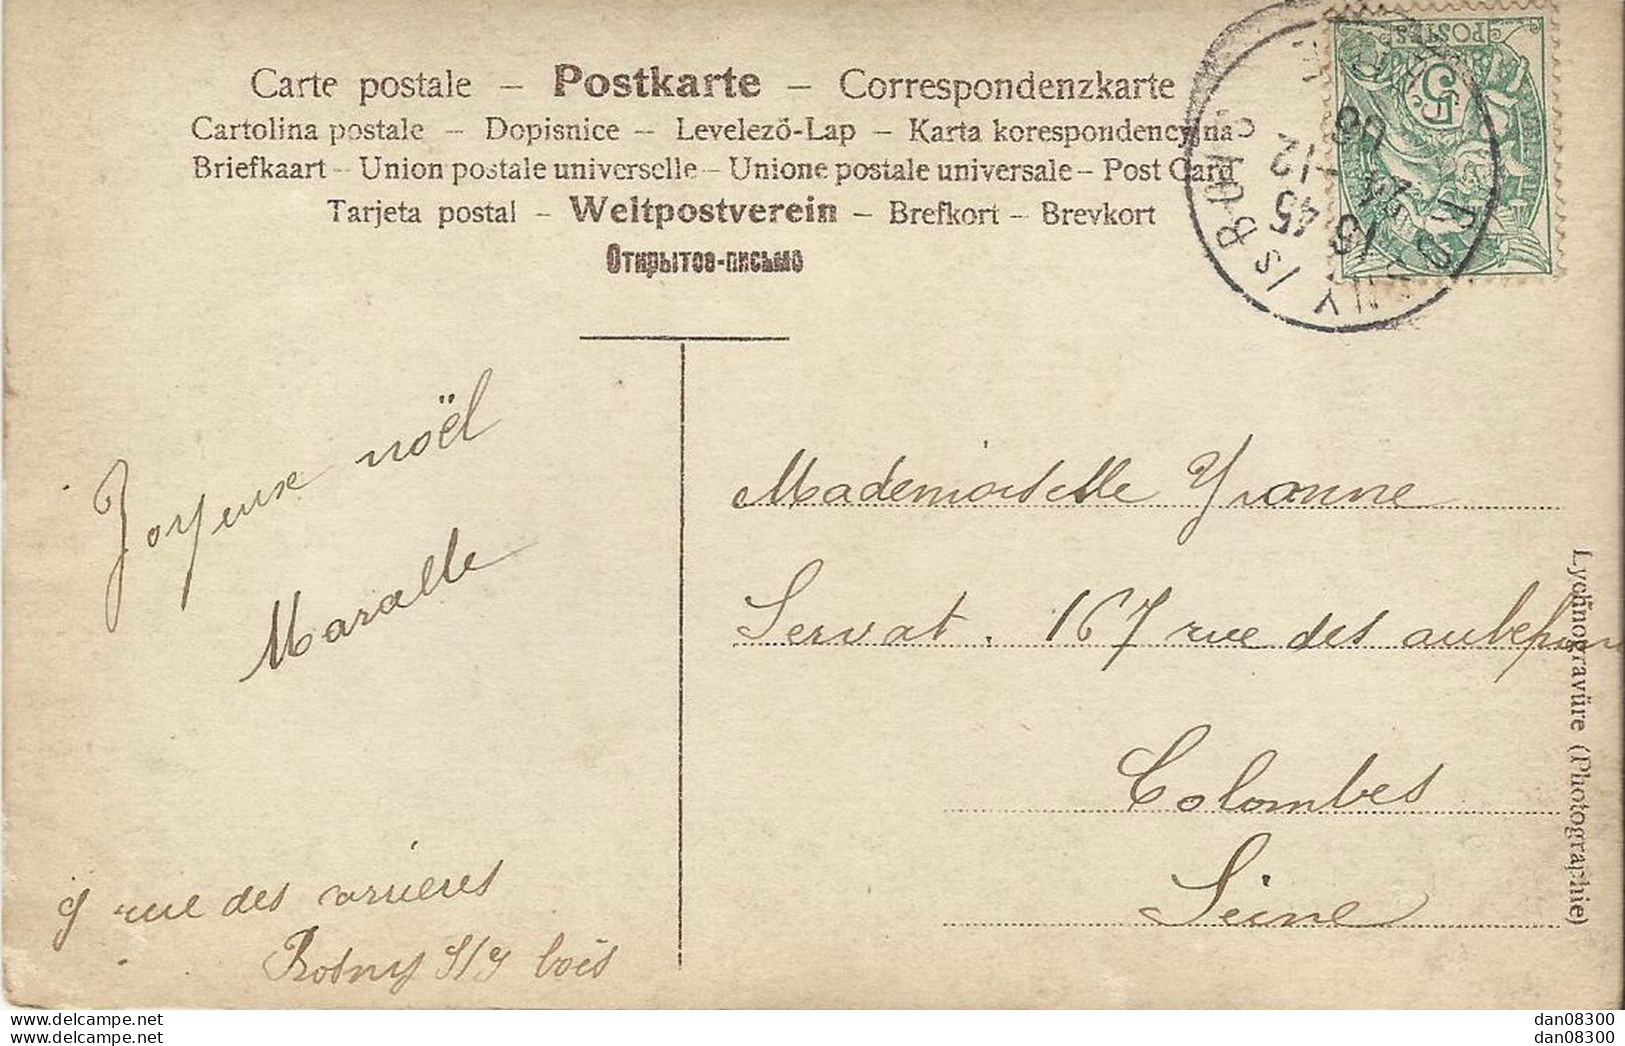 Carte postale – Postkarte – Correspondenzkarte
Cartolina postale – Dopisnice – Levelező-Lap – Karta korespondencyjna
Briefkaart – Union postale universelle – Unione postale universale – Post Card
Tarjeta postal – Weltpostverein – Brefkort – Brevkort
Открытое-письмо
POSTES
5
ROSNY /S BOIS
15 45
12
08
Joyeuse noël
Maralle
9 rue des arrieres
Rosny S/s bois
Mademoiselle Yvonne
Servat. 167 rue des aubepin
Colombes
Seine
Lychnogravüre (Photographie)
www.delcampe.net
www.delcampe.net
dan08300
dan08300